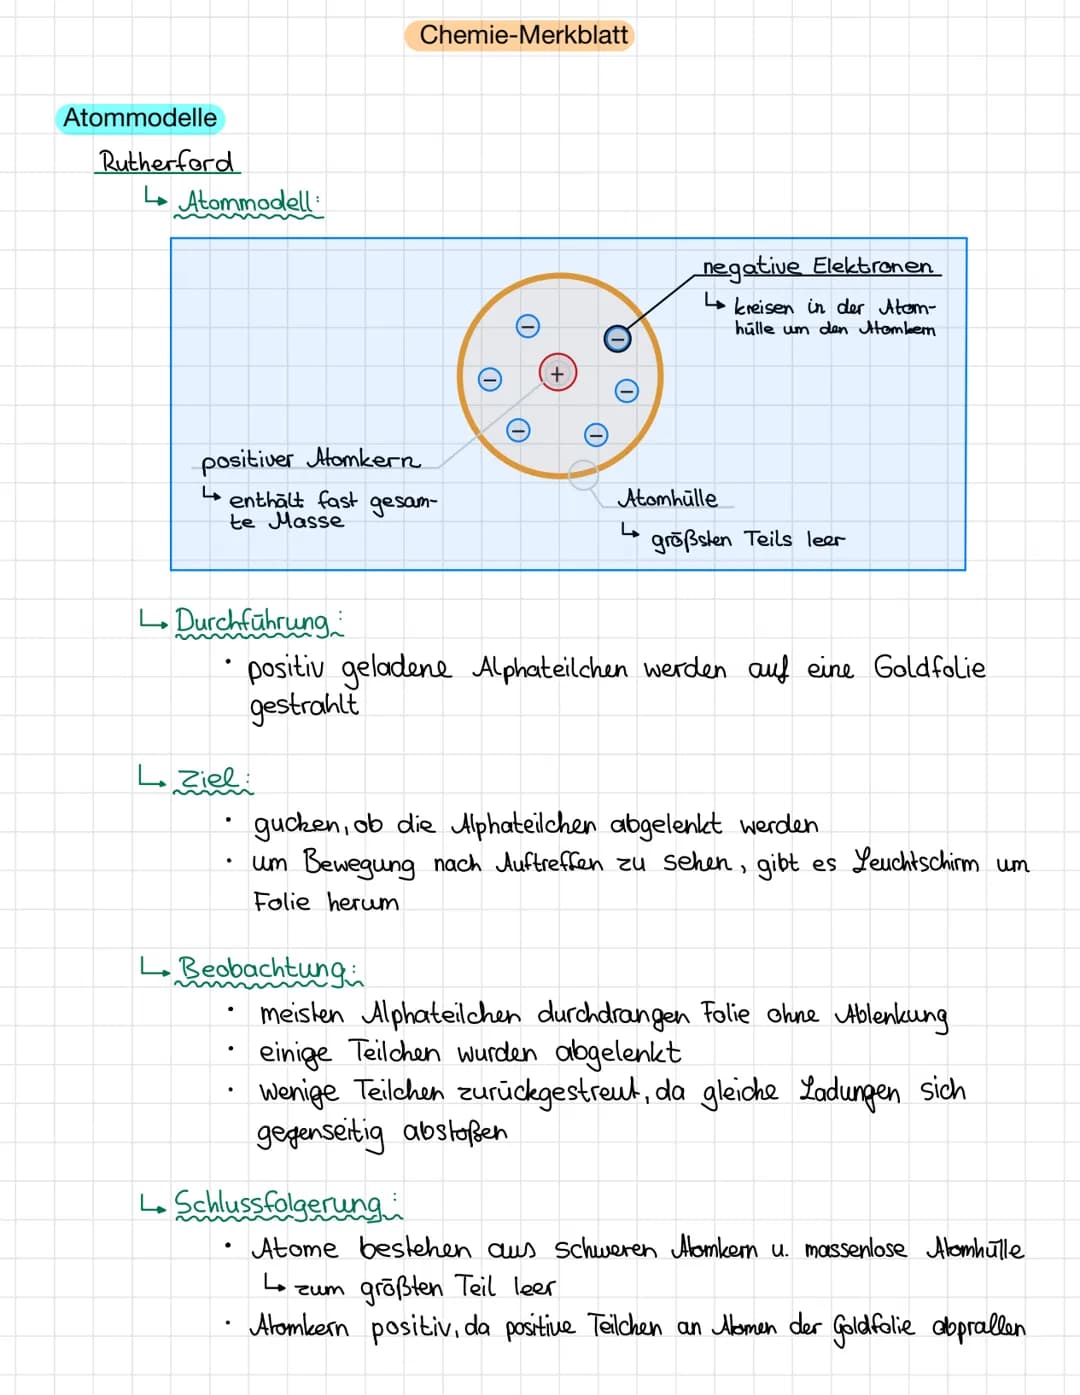 Chemie-Merkblatt
Atommodelle
Rutherford
↳ Atommodell:
negative Elektronen
↳ kreisen in der Atom-
hülle um den Atomkern
−
−
+
−
−
−
−
positiver Atomkern
↳ enthält fast gesam-
te Masse
Atomhülle
↳ größsten Teils leer
↳ Durchführung:
• positiv geladene Alphateilchen werden auf eine Goldfolie
gestrahlt
↳ Ziel:
• gucken, ob die Alphateilchen abgelenkt werden
• um Bewegung nach Auftreffen zu sehen, gibt es Leuchtschirm um
Folie herum
↳ Beobachtung:
• meisten Alphateilchen durchdrangen Folie ohne Ablenkung
• einige Teilchen wurden abgelenkt
• wenige Teilchen zurückgestreut, da gleiche Ladungen sich
gegenseitig abstoßen
↳ Schlussfolgerung:
• Atome bestehen aus schweren Atomkern u. massenlose Atomhülle
↳ zum größten Teil leer
• Atomkern positiv, da positive Teilchen an Atomen der Goldfolie abprallen